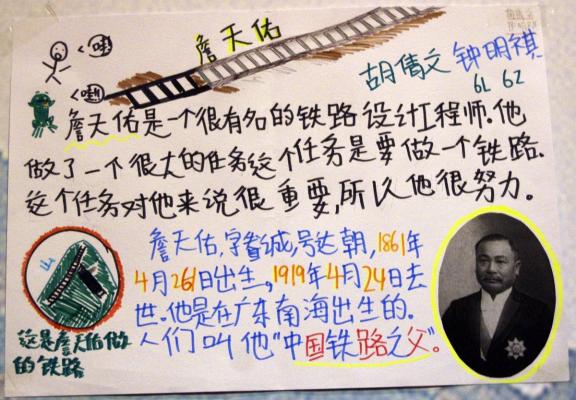 詹天佑
<嘞!
胡倩文 钟明祺
6L 6Z
<嘞!
詹天佑是一个很有名的铁路设计工程师.他
做了一个很大的任务这个任务是要做一个铁路.
这个任务对他来说很重要,所以他很努力。
詹天佑,字眷诚,号达朝,1861年
4月26日出生,1919年4月24日去
世.他是在广东南海出生的.
人们叫他“中国铁路之父”。
山
这是詹天佑做
的铁路